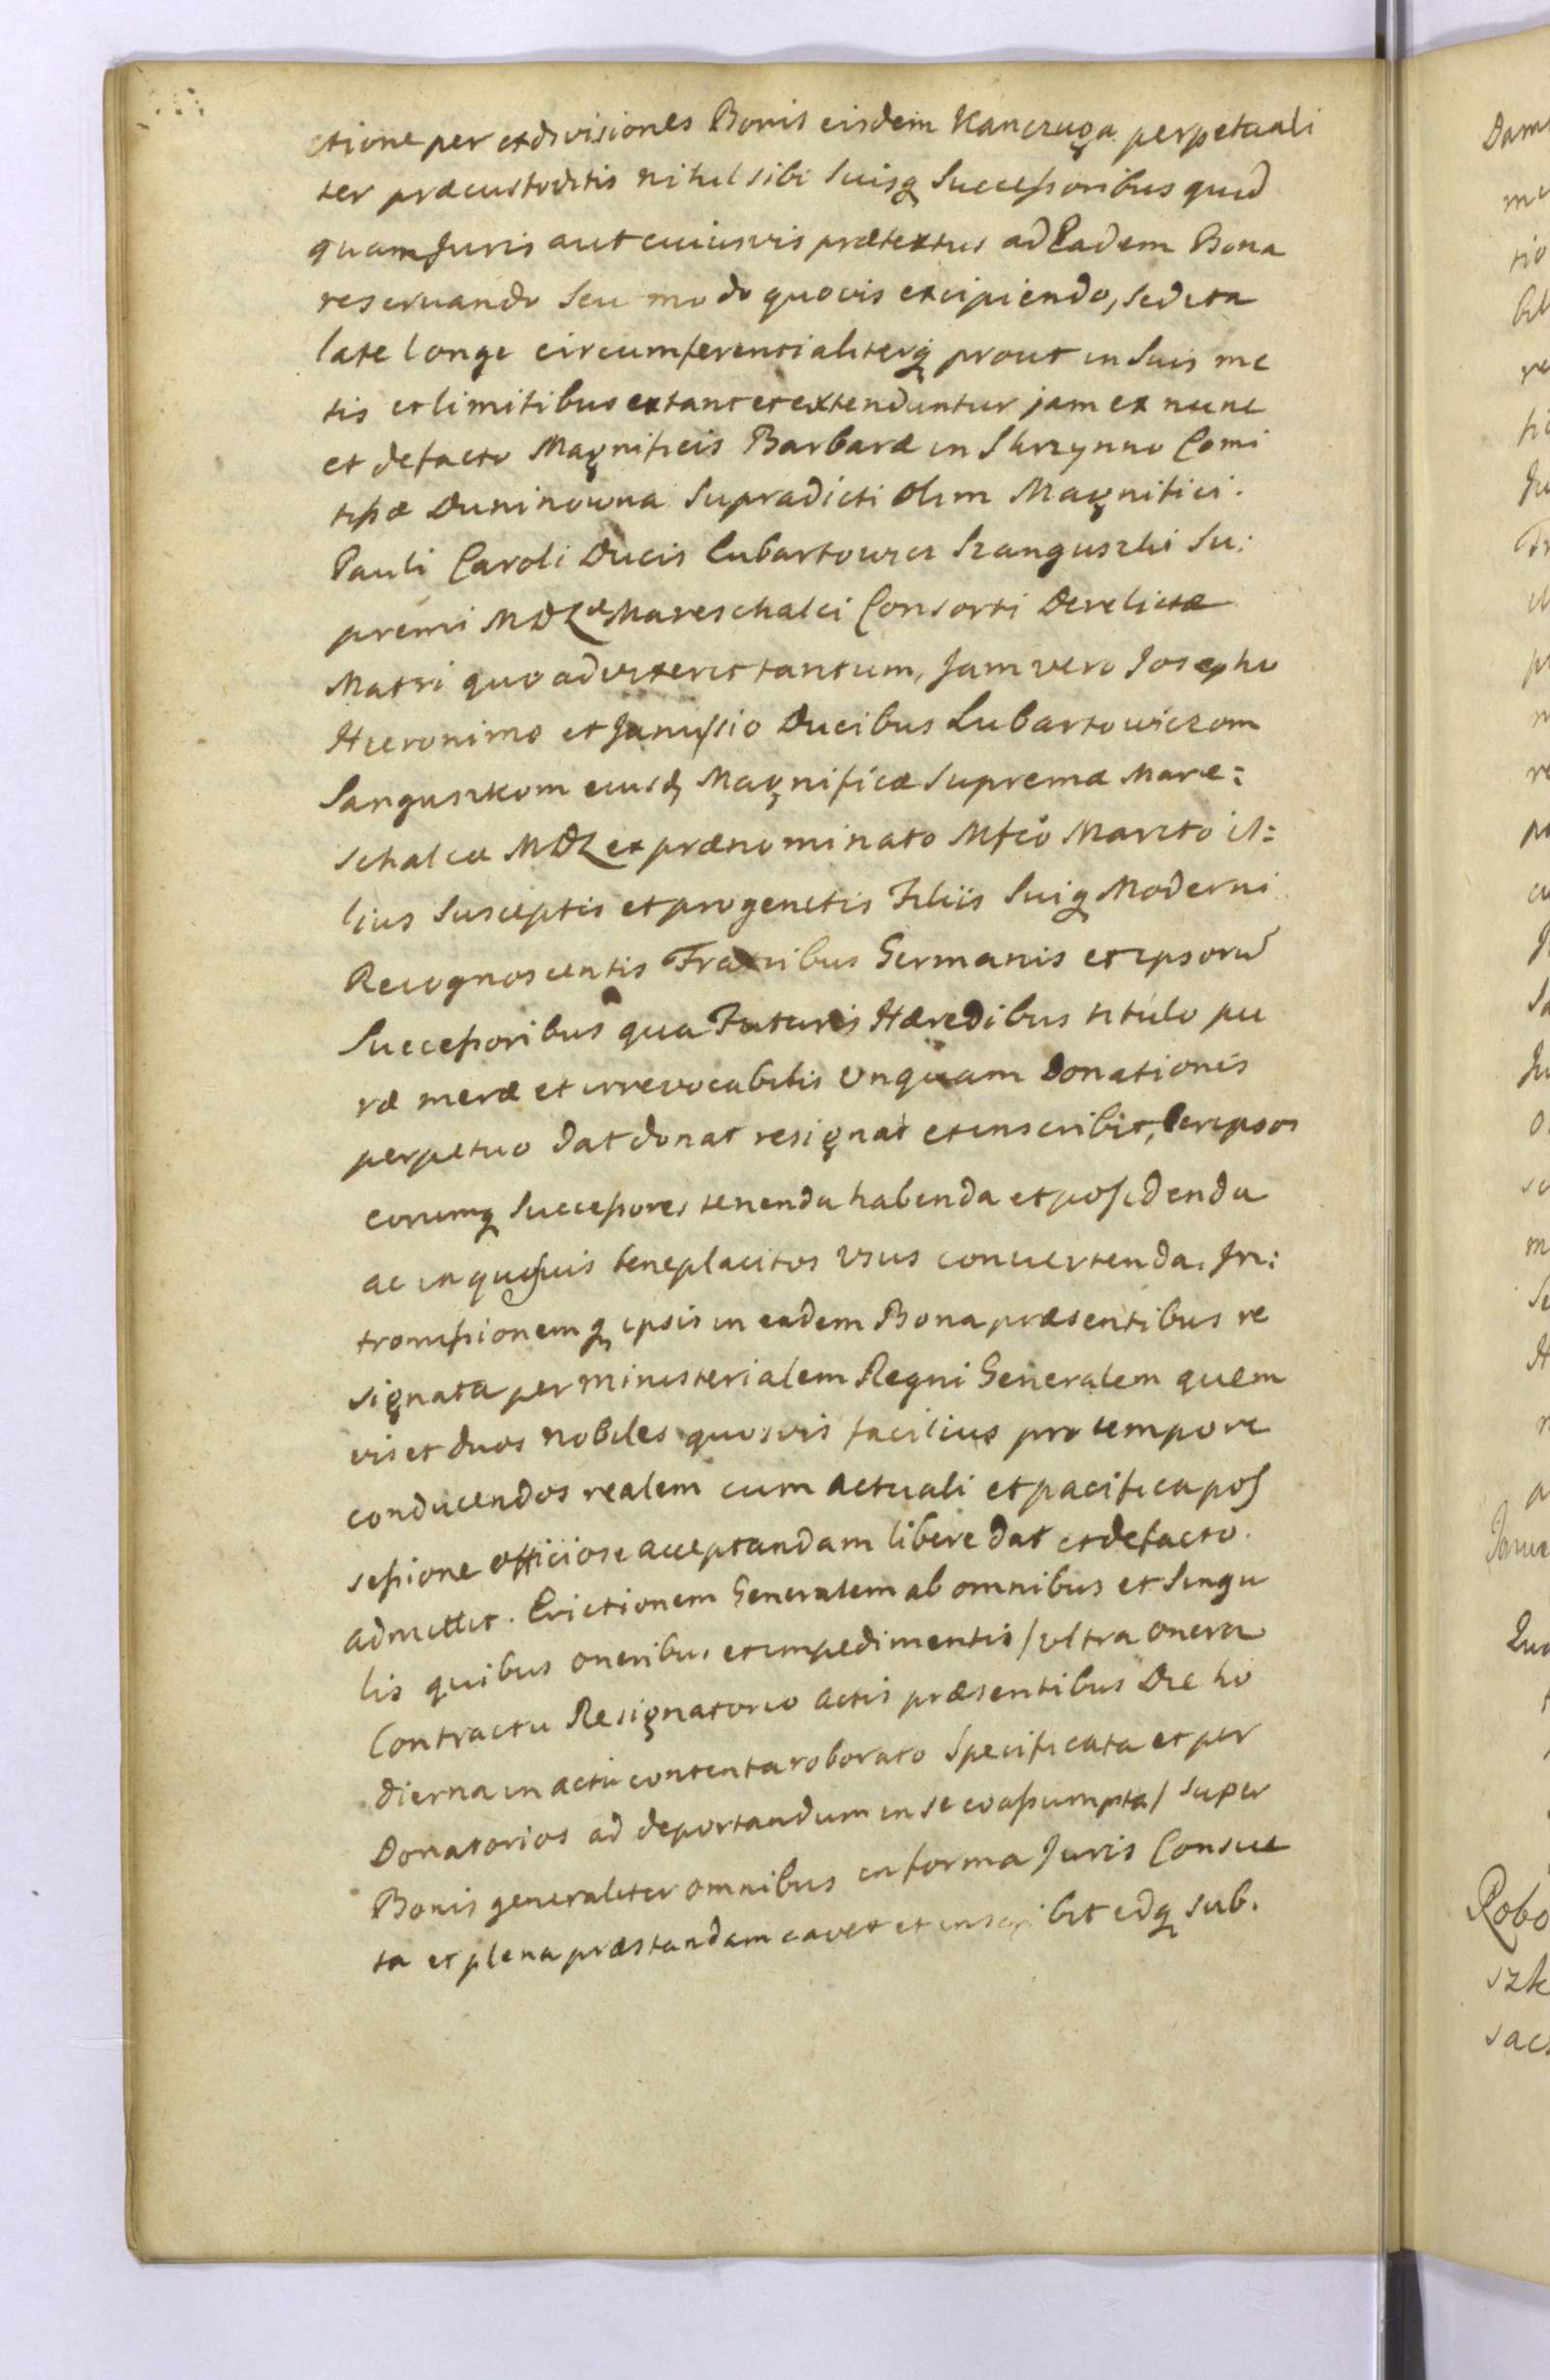 ctione per exdivisiones Bonis eisdem Kanczuga perpetuali
ter præcustoditis nihil sibi Suisq Successoribus quid
quam Juris aut cuiusvis prætextus ad Eadem Bona
reservando Seu modo quovis excipiendo, sed ita
late longe circumferentialiterq prout in Suis me
tis et limitibus extant et extenduntur jam ex nunc
et defacto Magnificis Barbaræ in Skrzynno Comi
tissæ Duninowna Supradicti Olim Magnifici.
Pauli Caroli Ducis Lubartowicz Szanguszki Su:
premi MDL Mareschalci Consorti Derelictæ
Matri quo advixerit tantum, Jam vero Josepho
Hieronimo et Janussio Ducibus Lubartowiczom
Sanguszkom eiusd Magnificæ Supremæ Mare:
schalcæ MDL ex prænominato Mfco Marito il:
lius Susceptis et progenitis Filiis Suiq Moderni
Recognoscentis Fratribus Germanis et ipsorū
Successoribus qua Futuris Hæredibus titulo pu
ræ meræ et irrevocabilis Unquam Donationis
perpetuo dat donat resignat et inscribit, per ipsos
eorumq Successores tenenda habenda et possidenda
ac in quosuis beneplacitos Usus convertenda. In:
tromissionemq ipsis in eadem Bona præsentibus re
signata per Ministerialem Regni Generalem quem
vis et duos Nobiles quosvis facilius pro tempore
conducendos realem cum actuali et pacifica pos
sessione officiose acceptandam libere dat et defacto.
admittit. Evictionem Generalem ab omnibus et Singu
lis quibus oneribus et impedimentis / ultra onera
Contractu Resignatorio Actis præsentibus Die ho
dierna in actu contenta roborato Specificata et per
Donatorios ad deportandum in se coassumpta / Super
Bonis generaliter omnibus in forma Juris Consue
ta et plena præstandam cavet et inscribit idq sub.
Dam
Robo
szk